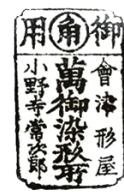 御角用
會津形屋
萬御染形所
小野寺常次郎